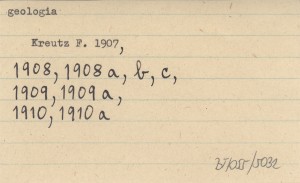 geologia
Kreutz F. 1907,
1908, 1908 a, b, c,
1909, 1909 a,
1910, 1910 a